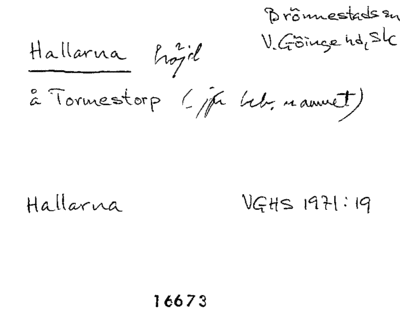 Brönnestads sn
V. Göinge hd, Sk
Hallarna höjd
å Tormestorp (- jfr beb. namnet)
Hallarna VGHS 1971:19
16673